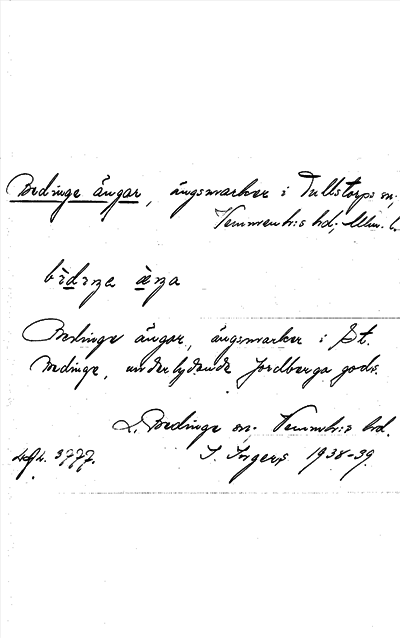 Bedinge ängar, ängsmarker i Tullstorps sn,
Vemmenh:s hd, Mlm. l.
Bedinge ängar, ängsmarker i St.
Bedinge, underlydande Jordberga gods.
L. Bedinge sn. Vemmh:s hd.
3777. I. Ingers 1938-39.